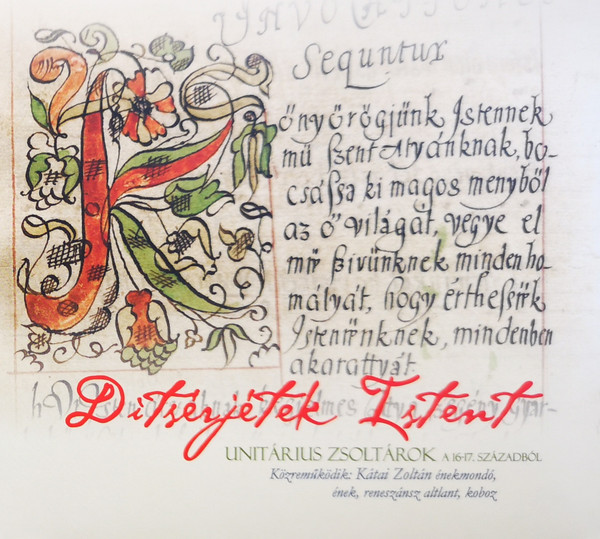 Sequntur
Könyörögjünk Istennek
mű szent Atyánknak, bo-
csássa ki magos menyből
az ő világát, vegye el
mű szivünknek minden ho-
mályát, hogy érthessük
Istenünknek, minden
akarattyát
Ditsérjétek Istent
UNITÁRIUS ZSOLTÁROK A 16-17. SZÁZADBÓL
Közreműködik: Kátai Zoltán énekmondó,
ének, reneszánsz altlant, koboz